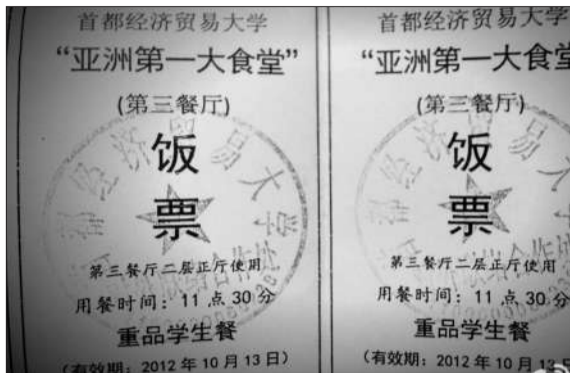 首都经济贸易大学
“亚洲第一大食堂”
(第三餐厅)
饭
票
第三餐厅二层正厅使用
用餐时间：11 点 30 分
重品学生餐
(有效期：2012 年 10 月 13 日)
首都经济贸易大学
“亚洲第一大食堂
(第三餐厅)
饭
票
第三餐厅二层正厅使用
用餐时间：11 点 30 分
重品学生餐
(有效期：2012 年 10 月 13